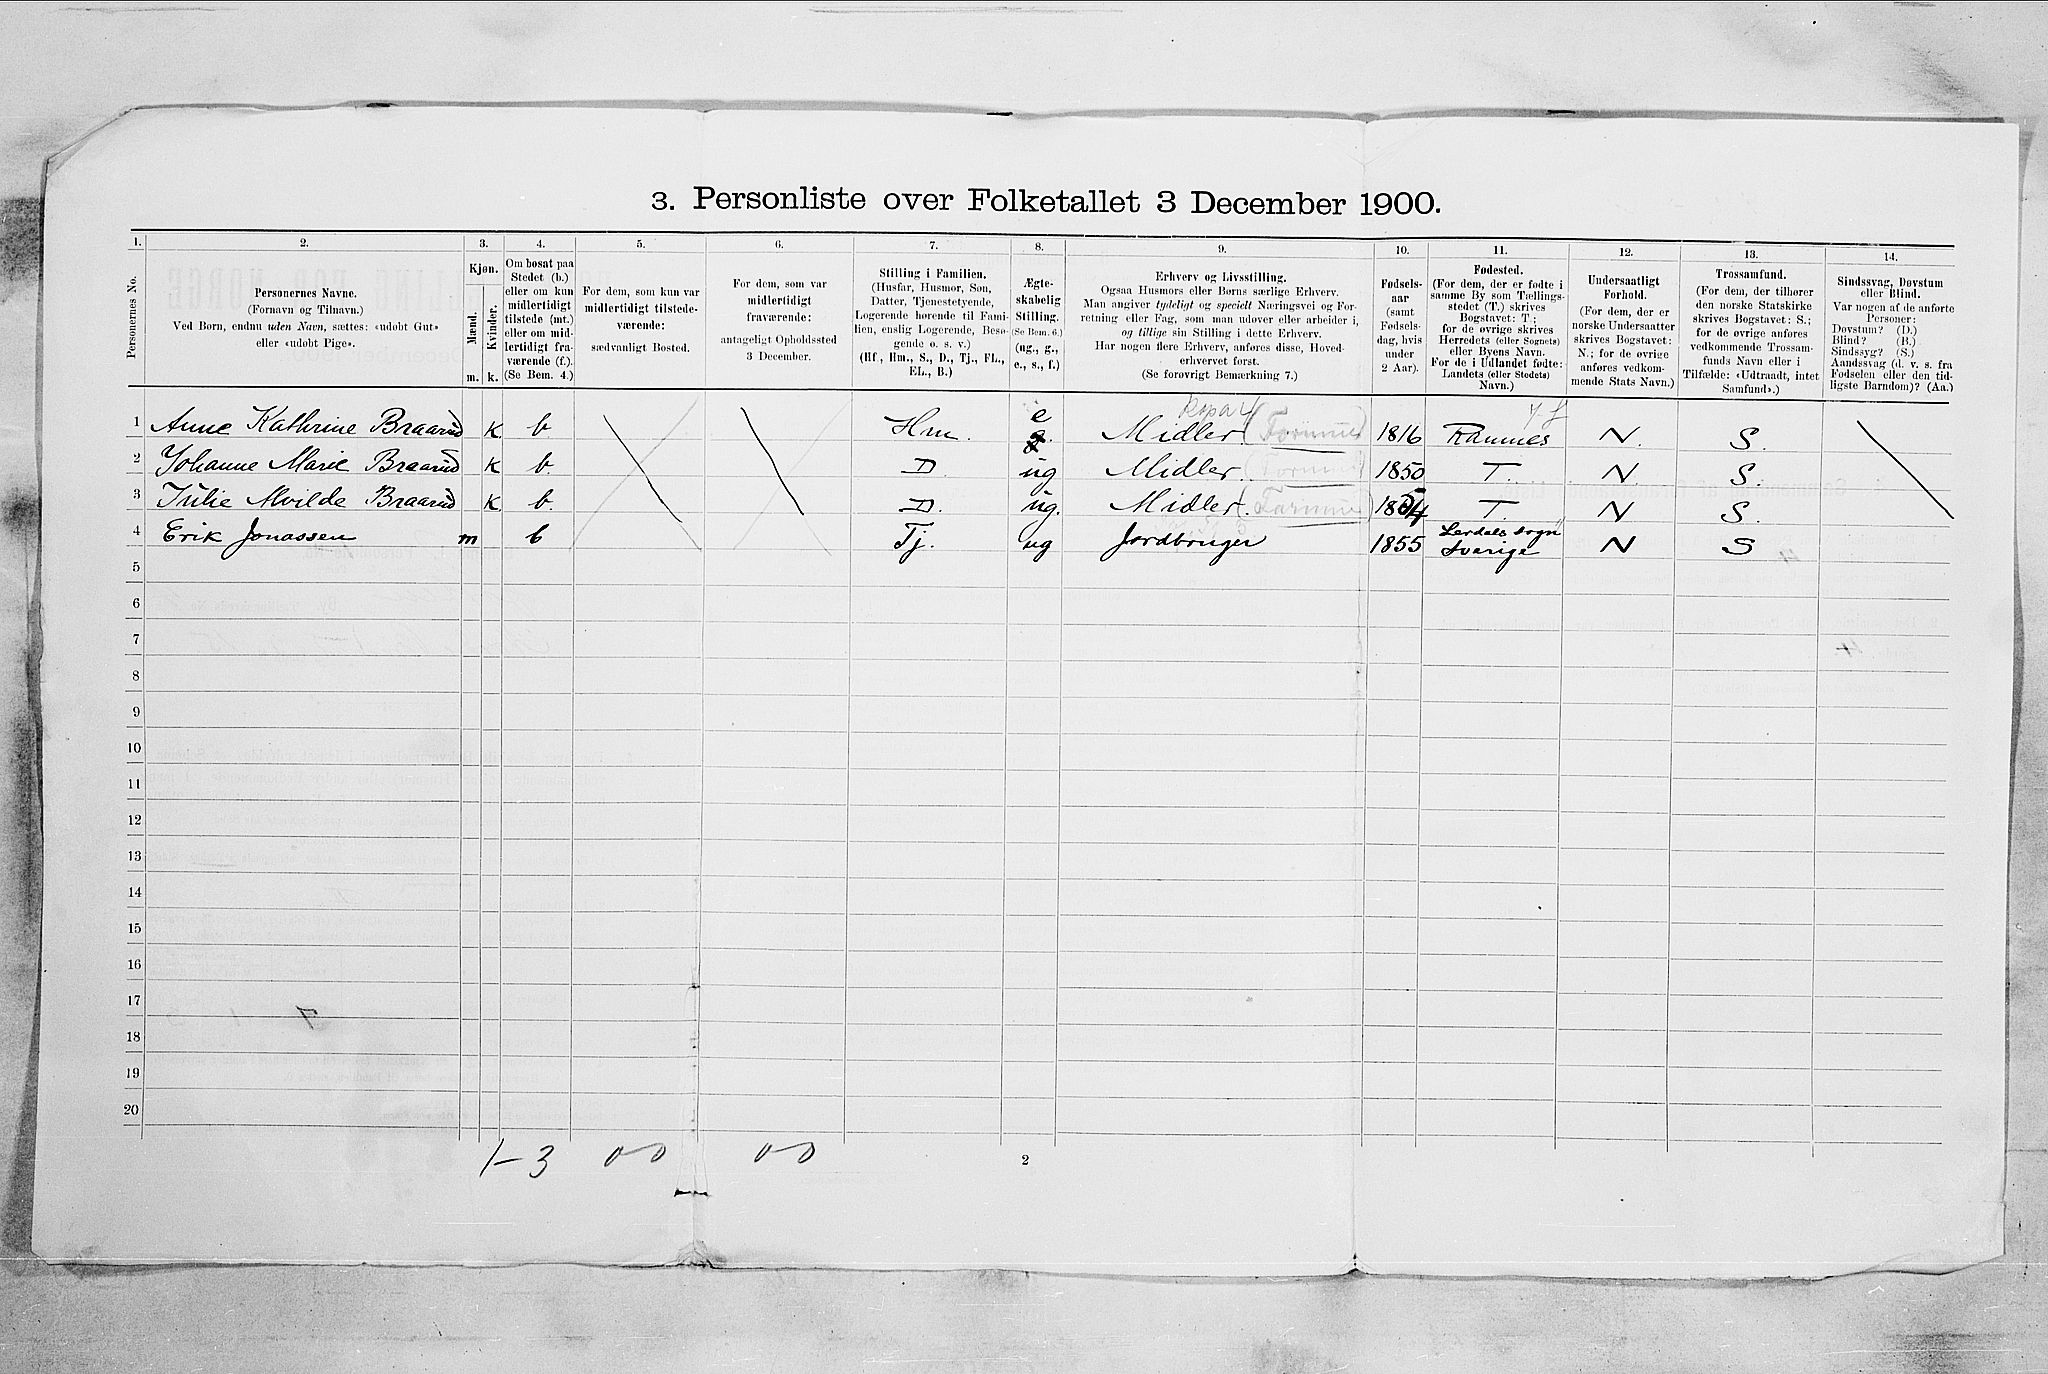 3. Personliste over Folketallet 3 December 1900.
1. 2. 3. 4. 5. 6. 7. 8. 9. 10. 11. 12. 13. 14.
Personernes No.
Personernes Navne.
(Fornavn og Tilnavn.)
Ved Børn, endnu uden Navn, sættes: «udøbt Gut»
eller «udøbt Pige».
Kjøn.
Mænd. Kvinder.
m. k.
Om bosat paa
Stedet (b.)
eller om kun
midlertidigt
tilstede (mt.)
eller om mid-
lertidigt fra-
værende (f.).
(Se Bem. 4.)
For dem, som kun var
midlertidigt tilstede-
værende:
sædvanligt Bosted.
For dem, som var
midlertidigt
fraværende:
antageligt Opholdssted
3 December.
Stilling i Familien.
(Husfar, Husmor, Søn,
Datter, Tjenestetyende,
Logerende hørende til Fami-
lien, enslig Logerende, Besø-
gende o. s. v.)
(Hf., Hm., S., D., Tj., FL.,
EL., B.)
Ægte-
skabelig
Stilling.
(Se Bem. 6.)
(ug., g.,
e., s., f.)
Erhverv og Livsstilling.
Ogsaa Husmors eller Børns særlige Erhverv.
Man angiver tydeligt og specielt Næringsvei og For-
retning eller Fag, som man udøver eller arbeider i,
og tillige sin Stilling i dette Erhverv.
Har nogen flere Erhverv, anføres disse, Hoved-
erhvervet først.
(Se forøvrigt Bemærkning 7.)
Fødsels-
aar
(samt
Fødsels-
dag, hvis
under
2 Aar).
Fødested.
(For dem, der er fødte i
samme By som Tællings-
stedet (T.) skrives
Bogstavet: T.;
for de øvrige skrives
Herredets (eller Sognets)
eller Byens Navn.
For de i Udlandet fødte:
Landets (eller Stedets)
Navn.)
Undersaatligt
Forhold.
(For dem, der er
norske Undersaatter
skrives Bogstavet:
N.; for de øvrige
anføres vedkom-
mende Stats Navn.)
Trossamfund.
(For dem, der tilhører
den norske Statskirke
skrives Bogstavet: S.;
for de øvrige anføres
vedkommende Trossam-
funds Navn eller i
Tilfælde: «Udtraadt, intet
Samfund».)
Sindssvag, Døvstum
eller Blind.
Var nogen af de anførte
Personer:
Døvstum? (D.)
Blind? (B.)
Sindssyg? (S.)
Aandssvag (d. v. s. fra
Fødselen eller den tid-
ligste Barndom)? (Aa.)
1 Anne Kathrine Braarud k b. Hm. e Midler. (Formue) 1816 N. S.
2 Johanne Marie Braarud k b. D. ug Midler. (Formue) 1850 T. N S.
3 Julie Mvilde Braarud k b. D. ug. Midler. (Formue) 1854 T. N S.
4 Erik Jonassen m b Tj. ug Jordbruger 1855 Lerdals sogn Sverige N S
5
6
7
8
9
10
11
12
13
14
15
16
17
18
19
20
1-3 0 0 0 0
2